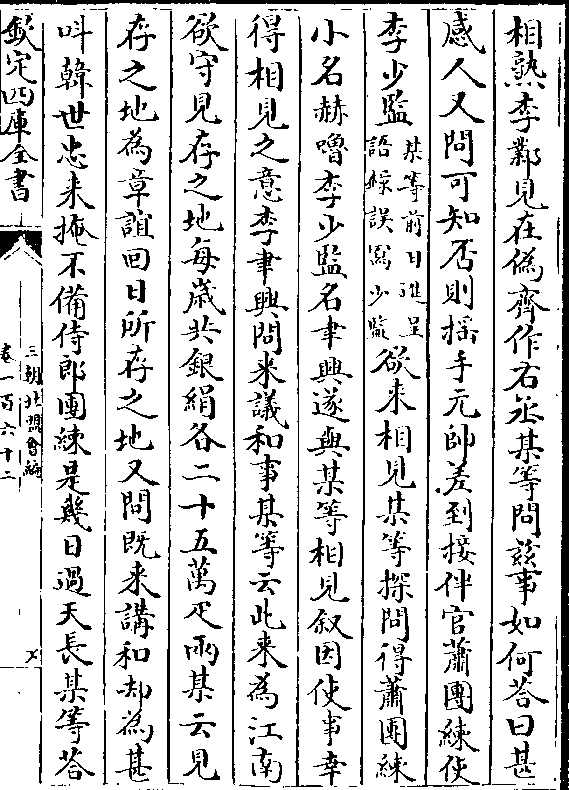 相熟李鄴見在偽齊作右丞某等問兹事如何荅曰甚
感人又問可知否則揺手元帥差到接伴官蕭團練使
李少監某等前日進呈語録誤寫少監欲来相見某等探問得蕭團練
小名赫嚕李少監名聿興遂與某等相見叙因使事幸
得相見之意李聿興問来議和事某等云此来為江南
欲守見存之地每嵗共銀絹各二十五萬疋兩某云見
存之地為章誼回日所存之地又問既来講和却為甚
呌韓世忠来掩不備侍郎團練是幾日過天長某等荅
欽定四庫全書
三朝北盟會編
卷一百六十二